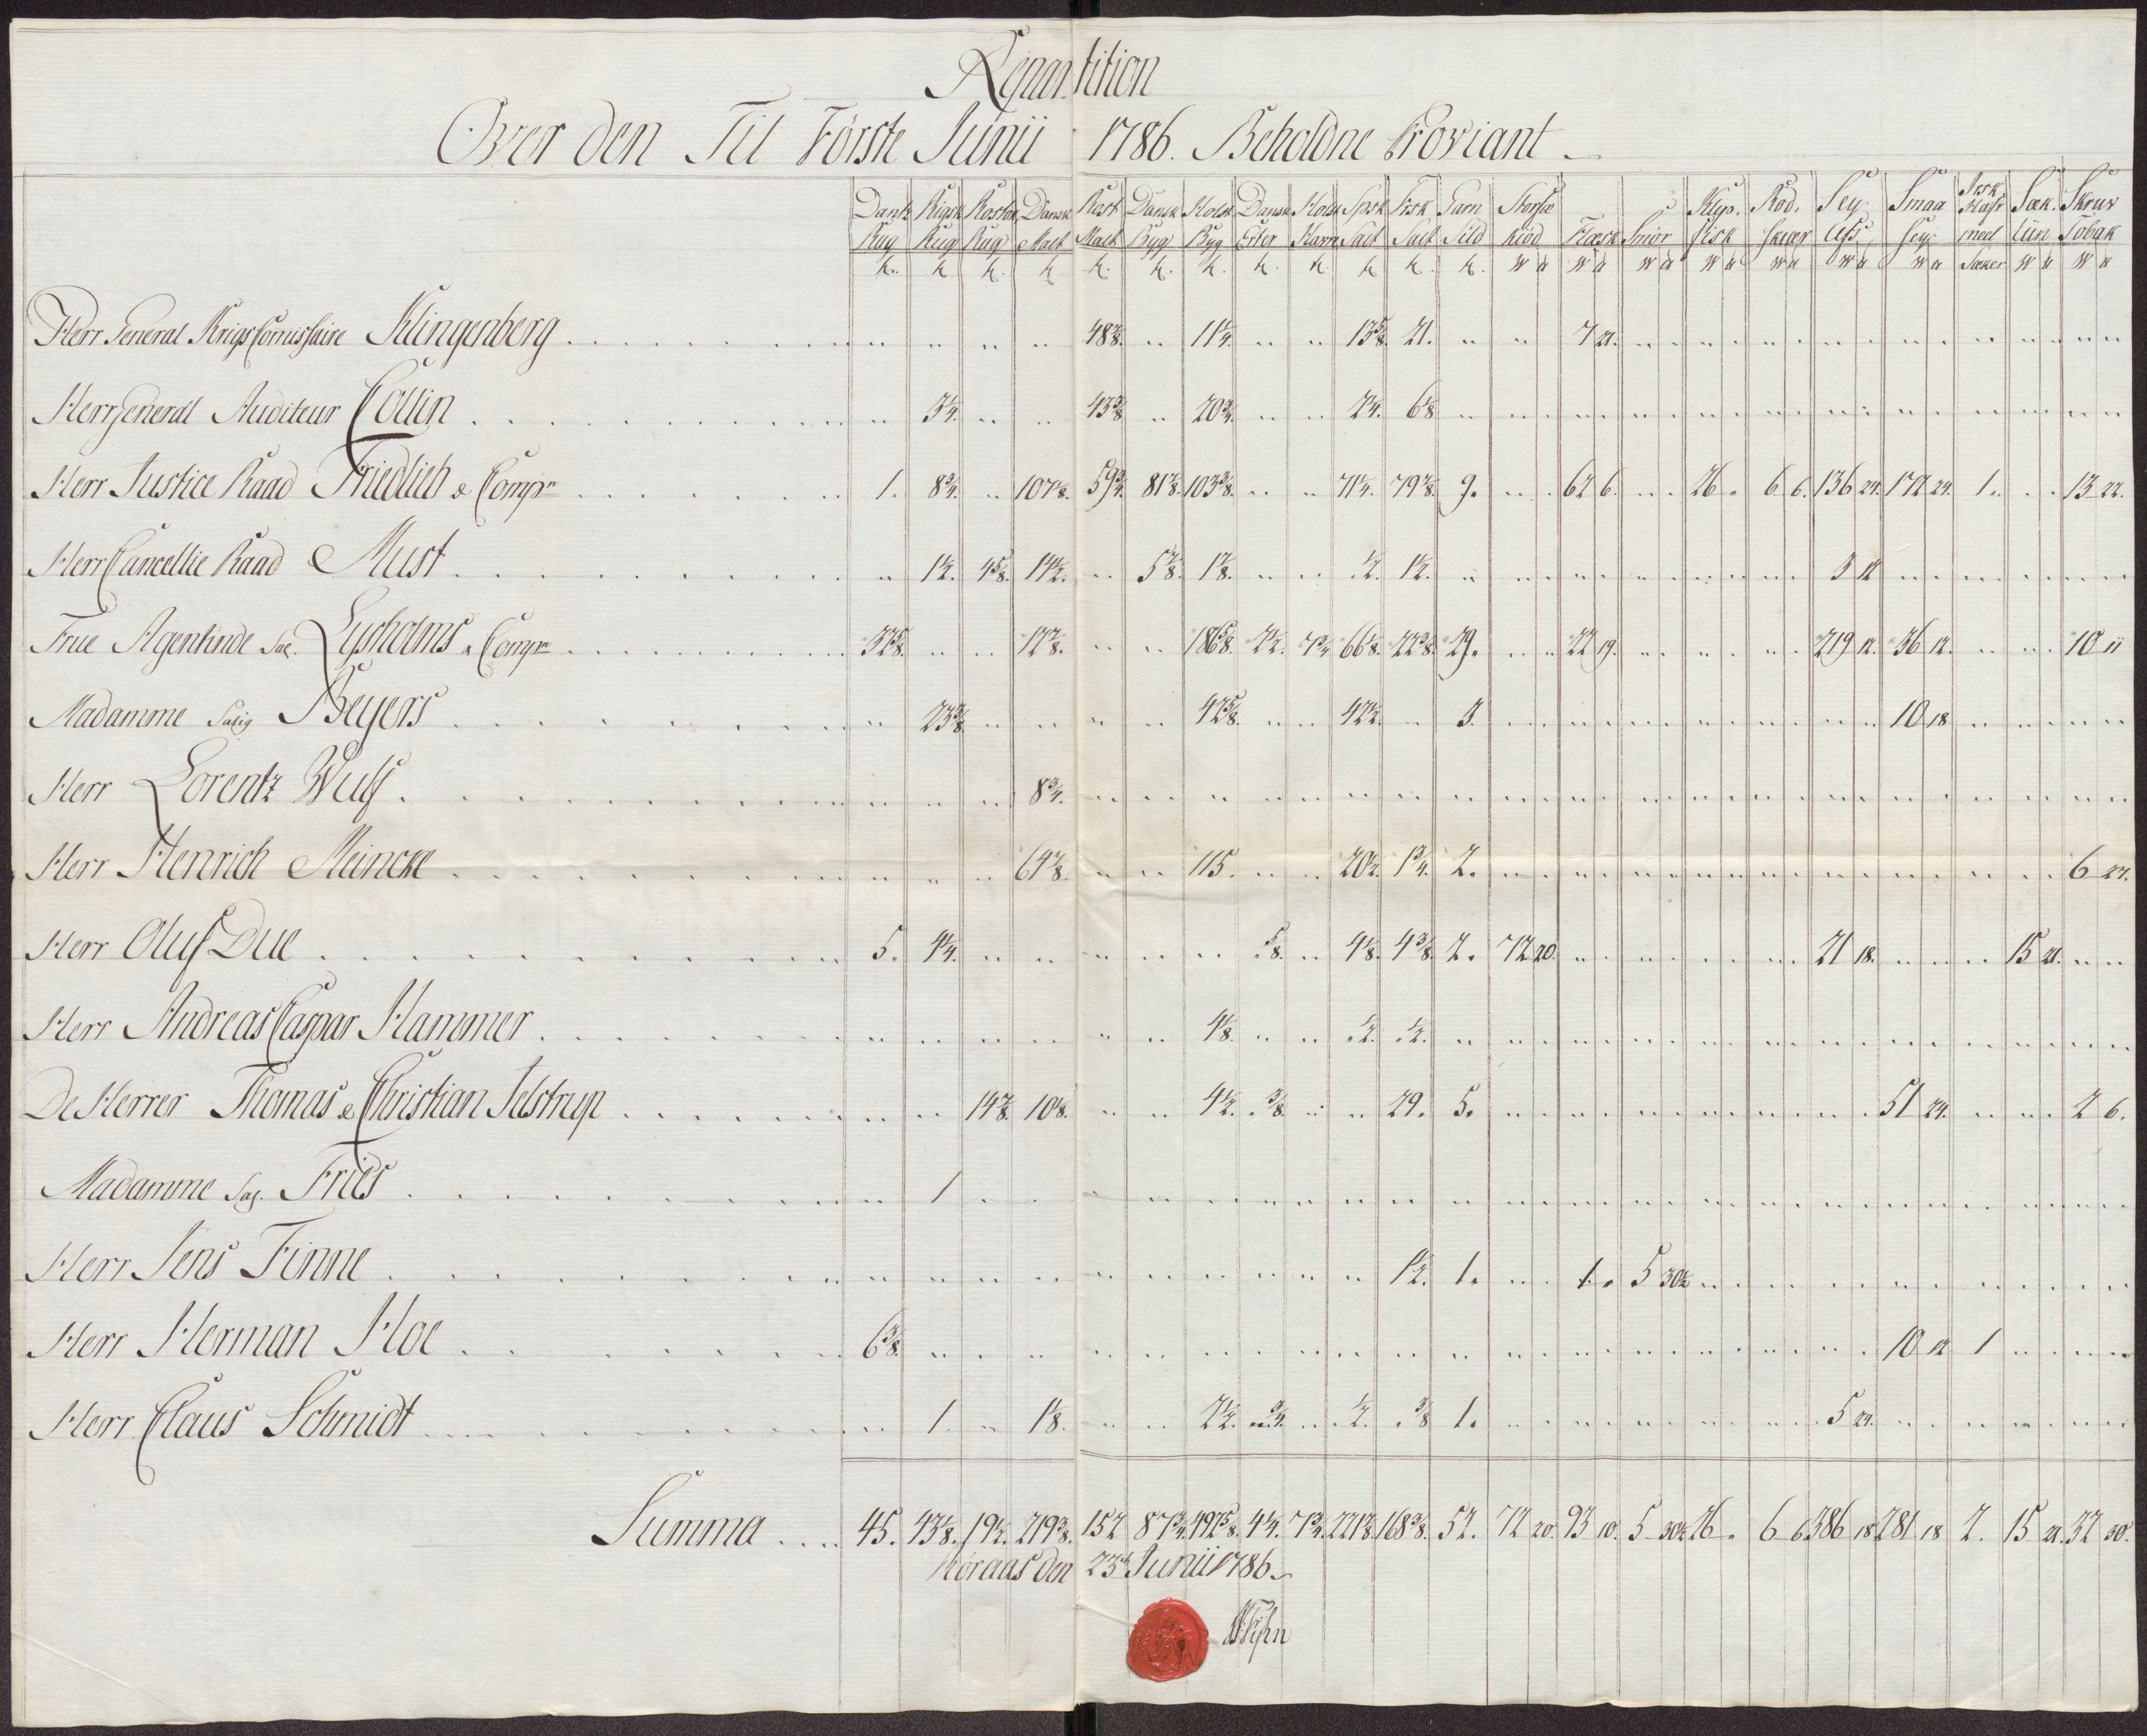 Repartition
Over den Til Förste Junii 1786. Beholdne Proviant
Dantz Rigsk Rostok Dansk Rost Dansk Holst Dansk Holst Spsk Frsk Garn Storfæ Klip. Rod. Sey Smaa Irsk Hafr Sæk. Skruv
Rug Rug Rug Malt Malt Byg Byg Erter Havre Salt Salt Sild Kiöd Flæsk Smör fisk skiær Ufs, sey meel liin Tobak
Sæker
Herr General Krigs Comissaire Klingenberg 48 7/8. 11 1/4. 13 5/8. 21. 7 21.
Herr General Auditeur Collin 3 1/4. 43 3/8 20 3/4. 2 1/4. 6 1/8
Herr Justice Raad Friedlieb & Comp 1. 8 3/4. 107 1/8. 59 3/4. 81 7/8. 103 3/8. 71 1/4. 79 7/8. 9. 62 6. 26. 6 6. 136 24. 172 24. 1. 13 22.
Herr Cancellie Raad Must 1 1/2. 4 5/8. 14 1/2. 5 7/8. 1 7/8. 1/2. 1 1/2. 3 12
Frue Agentinde Sal. Lysholms & Comp 32 5/8. 12 7/8. 186 5/8. 2 1/2. 7 3/4 66 1/8. 22 3/8. 29. 22 19. 219 12. 36 12. 10 11
Madamme Salig Beyers 23 3/8. 42 5/8. 42 1/2. 3. 10 18
Herr Lorentz Wulf 8 3/4.
Herr Henrich Meincke 64 7/8. 115. 20 1/2. 1 3/4. 2. 6 23.
Herr Oluf Due 5. 4 1/4. 5/8. 4 1/8. 4 3/8. 2. 72 20. 21 18. 15 21.
Herr Andreas Caspar Hammer 4 1/8. 1/2. 1/2.
De Herrer Thomas & Christian Jelstrup 14 7/8. 10 1/8. 4 1/2. 3/8 29. 5. 51 24. 2 6.
Madamme Sag. Fries 1
Herr Jens Finne 1 1/2. 1. 1. 5 30 1/2
Herr Herman Hoe 6 3/8. 10 12 1
Herr Claus Schmidt 1. 1 1/8. 2 1/2. 3/4. 1/2. 3/8 1. 5 24.
Summa 45. 43 1/8. 19 1/2. 219 3/8. 152 87 3/4. 492 5/8. 4 1/4. 7 3/4. 221 7/8. 168 3/8. 52. 72 20. 93 10. 5 30 1/2 26. 6 6. 386 18 281 18 2. 15 21. 32 30.
Röraas den 23d Junii 1786.